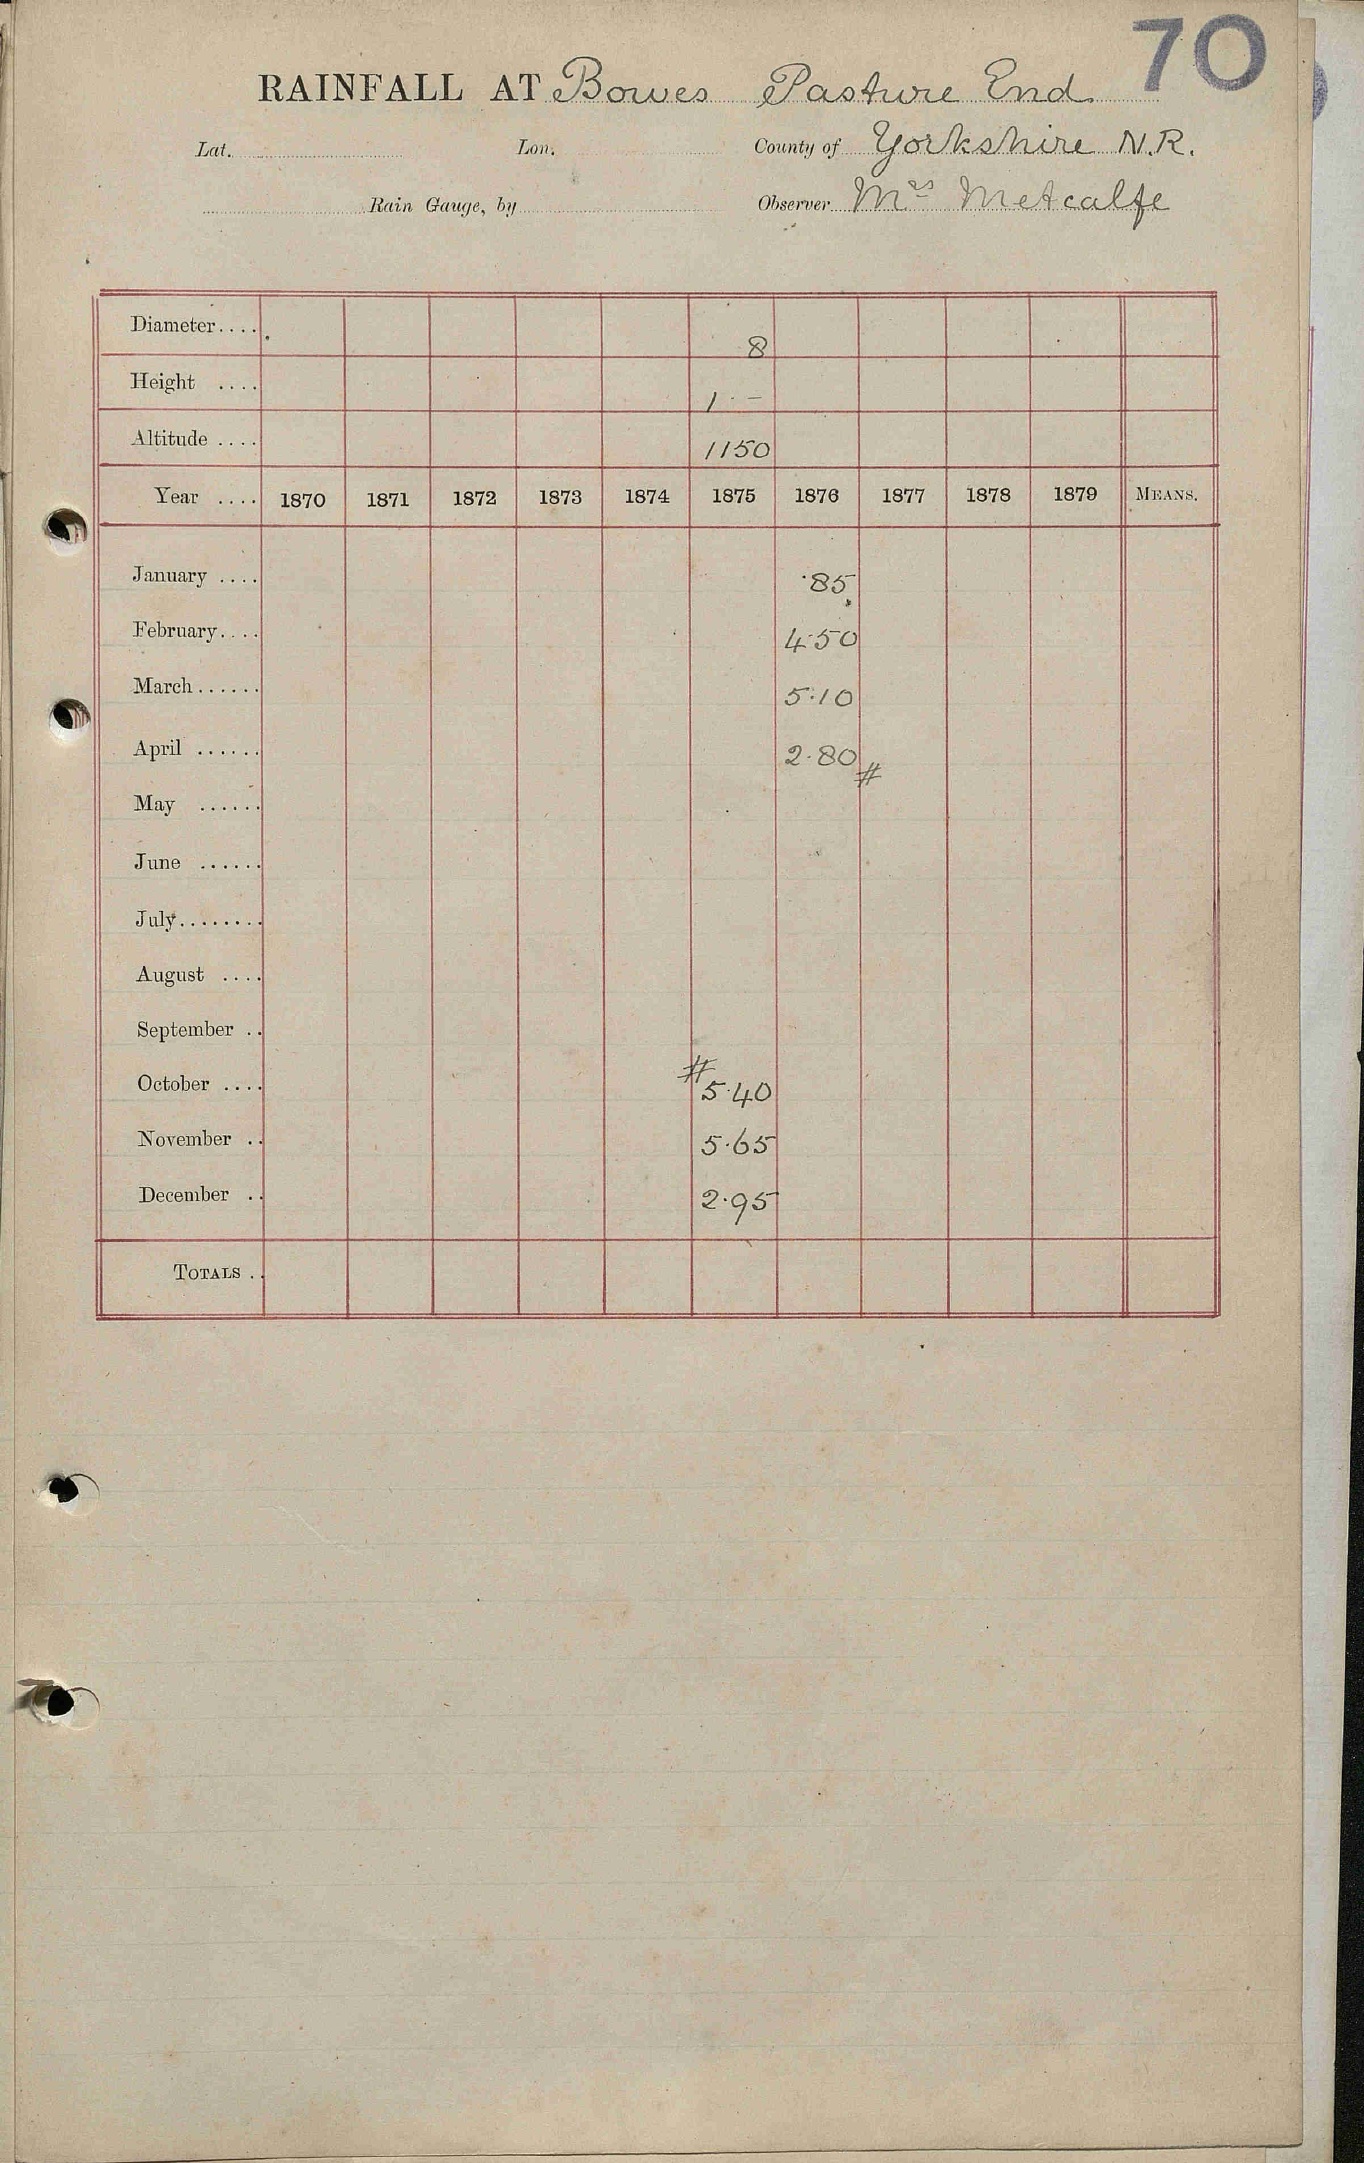 70
RAINFALL AT Bowes Pasture End.
Lat. Lon. County of Yorkshire N.R.
Rain Gauge, by Observer Mrs Metcalfe
Diameter.... 8
Height .... 1 · –
Altitude .... 1150
Year .... 1870 1871 1872 1873 1874 1875 1876 1877 1878 1879 MEANS.
January .... ·85
February.... 4·50
March...... 5·10
April ...... 2·80 #
May ......
June ......
July........
August ....
September ..
October .... # 5·40
November .. 5·65
December .. 2·95
TOTALS ..